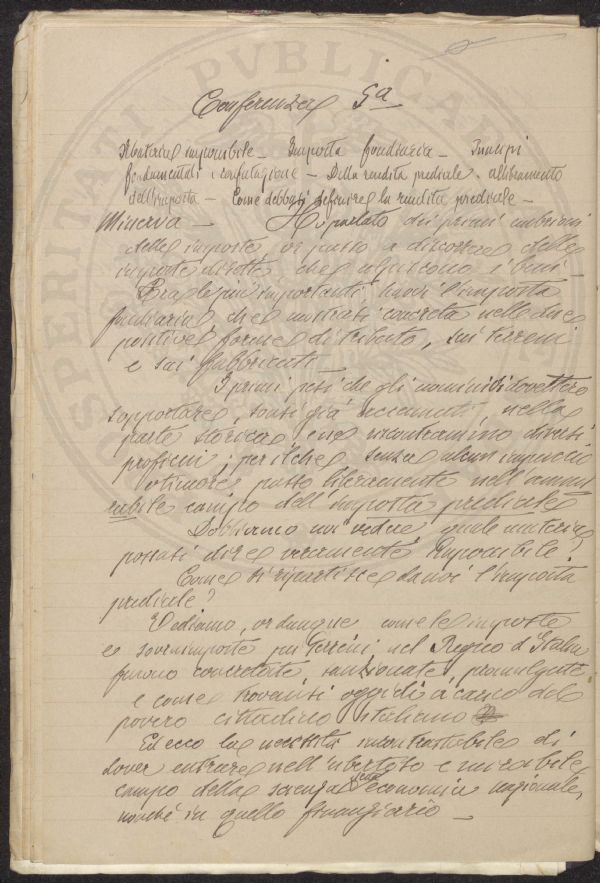 PROSPERITATI PVBLICAE
Conferenza 5a
Materia imponibile – Imposta fondiaria – Principi
fondamentali – Della rendita prediale
dell'imposta – Come debbasi definire la rendita prediale –
Minerva – Ho parlato dei primi
delle imposte, or passo a discorrere delle
imposte dirette che colpiscono i beni –
Fra le più importanti havvi l'imposta
fondiaria, che mostrasi concreta nelle due
positive forme di tributo, sui terreni
e sui fabbricati.
I primi pesi che gli uomini dovettero
sopportare, sonsi già accennati nella
parte storica, ove riscontrammo diversi
; perilchè senza alcun
ulteriore passo liberamente nell'ammi
rabile campo dell'imposta prediale
Dobbiamo noi vedere quale materia
possasi dire veramente imponibile?
Come si ripartisce da noi l'imposta
prediale?
Vediamo, or dunque come le imposte
e sovrimposte sui terreni, nel Regno d'Italia
furono concretate, sanzionate, promulgate
e come trovansi oggidì a carico del
povero cittadino italiano
Ed ecco la necessità incontrastabile di
dover entrare nell'ubertoso e mirabile
campo della scienza della economia nazionale,
nonché in quello finanziario –